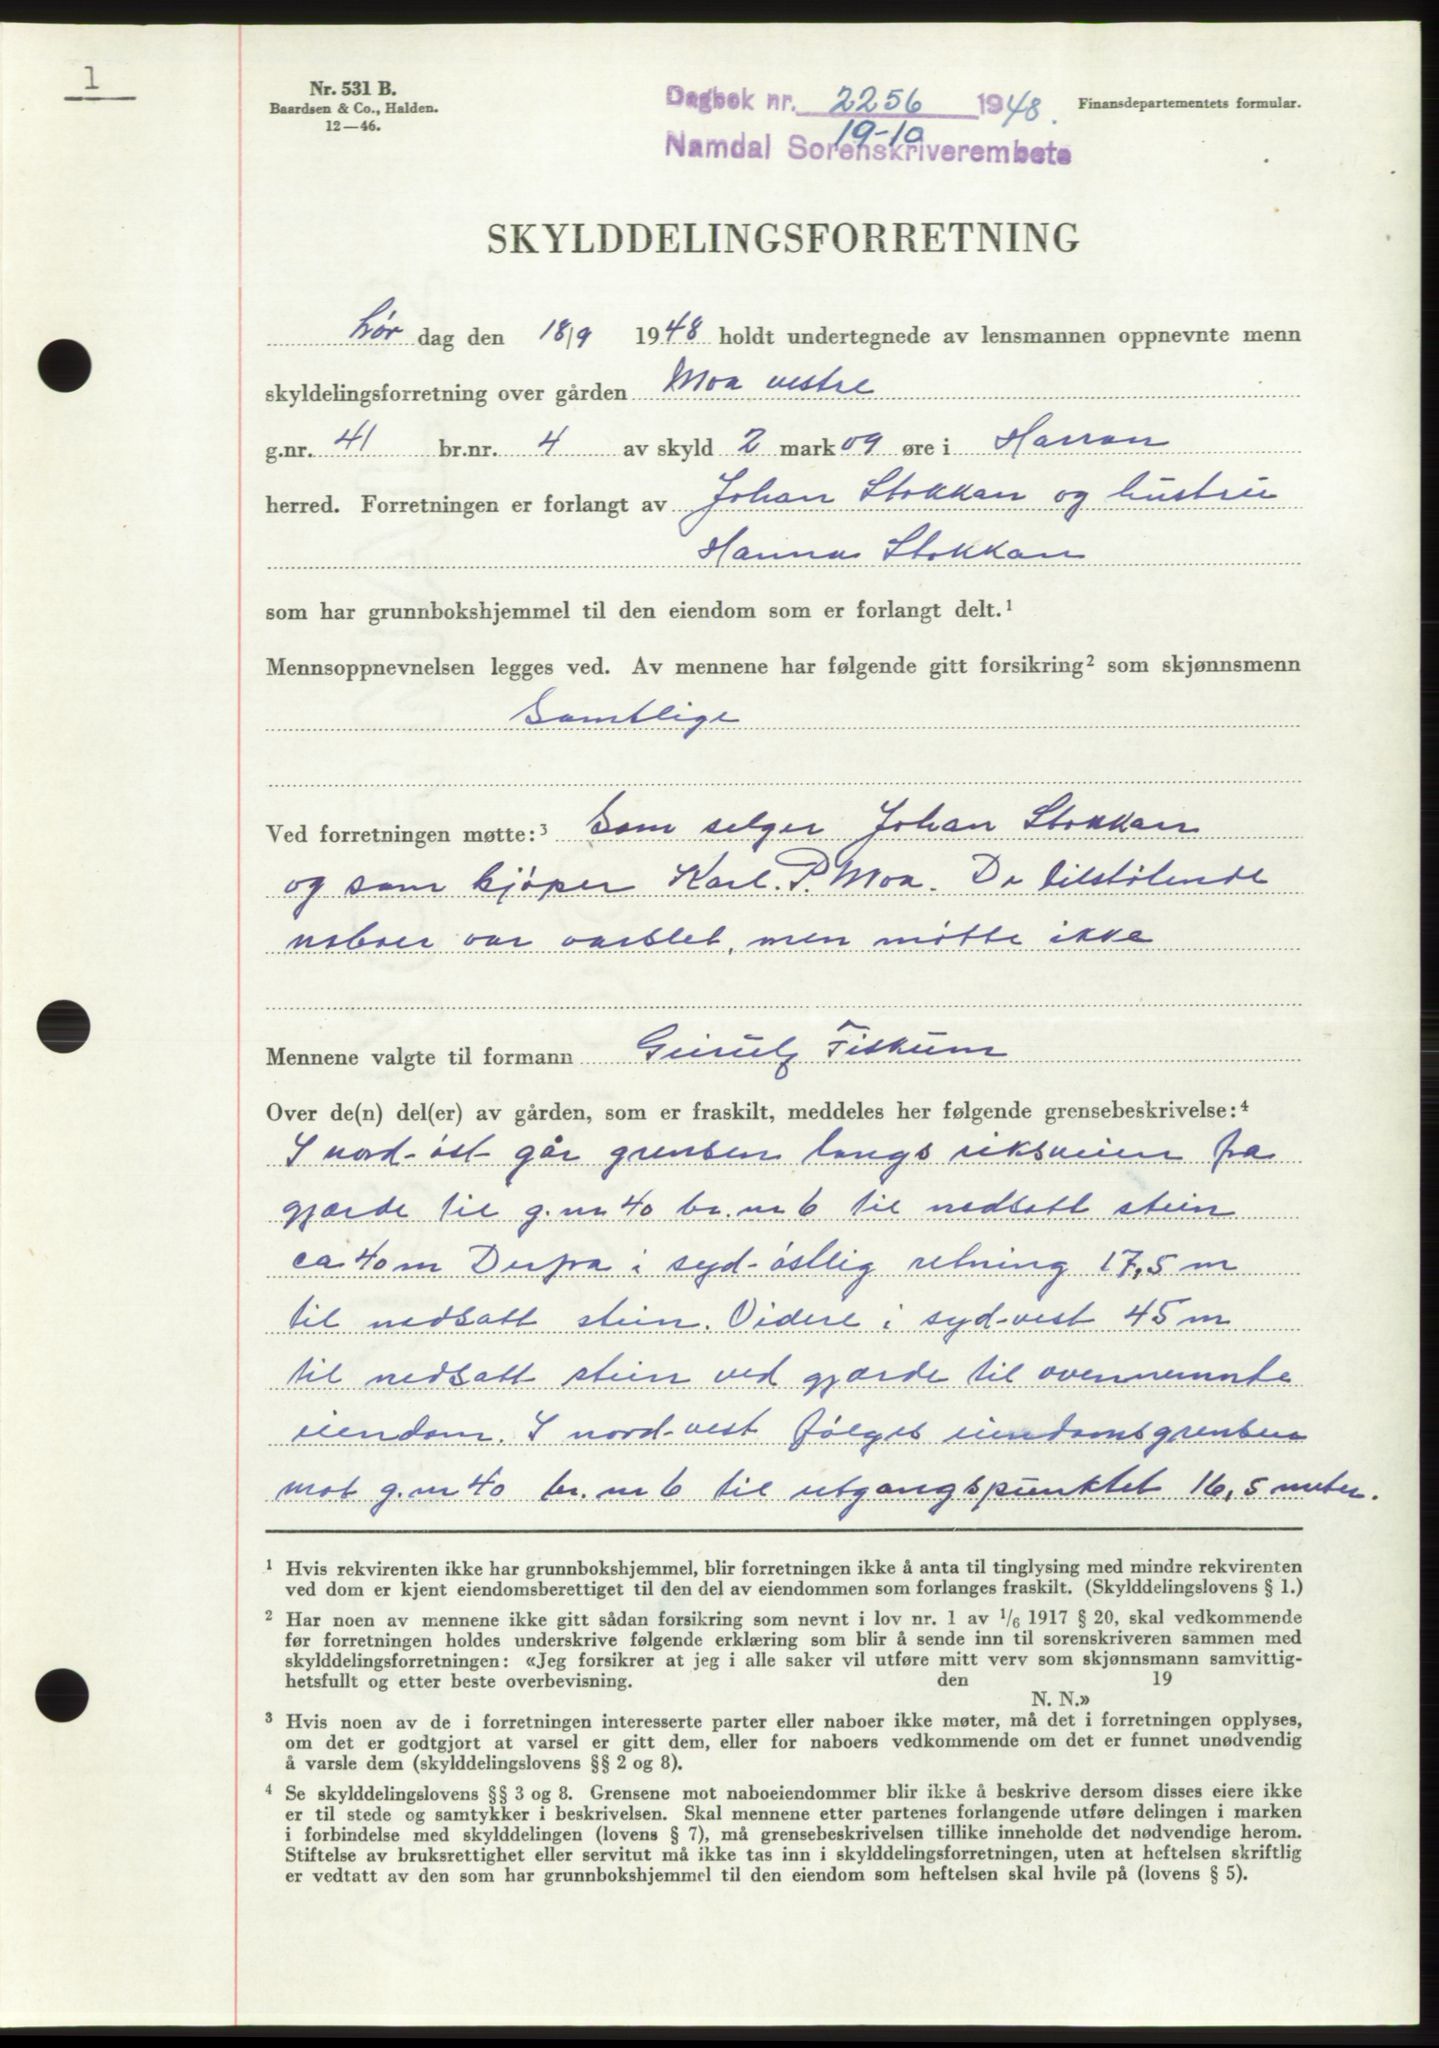 1
Nr. 531 B.
Baardsen & Co., Halden.
12—46.
Dagbok nr. 2256 1948.
19-10
Namdal Sorenskriverembete
Finansdepartementets formular.
SKYLDDELINGSFORRETNING
Lør dag den 18/9 1948 holdt undertegnede av lensmannen oppnevnte menn
skyldelingsforretning over gården Moa vestre
g.nr. 41 br.nr. 4 av skyld 2 mark 09 øre i Harran
herred. Forretningen er forlangt av Johan Stokkan og hustru
Hanna Stokkan
som har grunnbokshjemmel til den eiendom som er forlangt delt.¹
Mennsoppnevnelsen legges ved. Av mennene har følgende gitt forsikring² som skjønnsmenn
Samtlige
Ved forretningen møtte:³ Som selger Johan Stokkan
og som kjøper Karl. P. Moa. De tilstøtende
naboer var varslet, men møtte ikke
Mennene valgte til formann Geirulf Fiskum
Over de(n) del(er) av gården, som er fraskilt, meddeles her følgende grensebeskrivelse:⁴
I nord-øst går grensen langs riksveien fra
gjærde til g.nr 40 br.nr 6 til nedsatt stein
ca 40 m Derfra i syd-østlig retning 17,5 m
til nedsatt stein. Videre i syd-vest 45 m
til nedsatt stein ved gjærde til ovennevnte
eiendom. I nord-vest følges eiendomsgrensen
mot g.nr 40 br.nr 6 til utgangspunktet 16,5 meter.
¹ Hvis rekvirenten ikke har grunnbokshjemmel, blir forretningen ikke å anta til tinglysing med mindre rekvirenten
ved dom er kjent eiendomsberettiget til den del av eiendommen som forlanges fraskilt. (Skylddelingslovens § 1.)
² Har noen av mennene ikke gitt sådan forsikring som nevnt i lov nr. 1 av 1/6 1917 § 20, skal vedkommende
før forretningen holdes underskrive følgende erklæring som blir å sende inn til sorenskriveren sammen med
skylddelingsforretningen: «Jeg forsikrer at jeg i alle saker vil utføre mitt verv som skjønnsmann samvittig-
hetsfullt og etter beste overbevisning. den 19
N. N.»
³ Hvis noen av de i forretningen interesserte parter eller naboer ikke møter, må det i forretningen opplyses,
om det er godtgjort at varsel er gitt dem, eller for naboers vedkommende om det er funnet unødvendig
å varsle dem (skylddelingslovens §§ 2 og 8).
⁴ Se skylddelingslovens §§ 3 og 8. Grensene mot naboeiendommer blir ikke å beskrive dersom disses eiere ikke
er til stede og samtykker i beskrivelsen. Skal mennene etter partenes forlangende utføre delingen i marken
i forbindelse med skylddelingen (lovens § 7), må grensebeskrivelsen tillike inneholde det nødvendige herom.
Stiftelse av bruksrettighet eller servitut må ikke tas inn i skylddelingsforretningen, uten at heftelsen skriftlig
er vedtatt av den som har grunnbokshjemmel til den eiendom som heftelsen skal hvile på (lovens § 5).